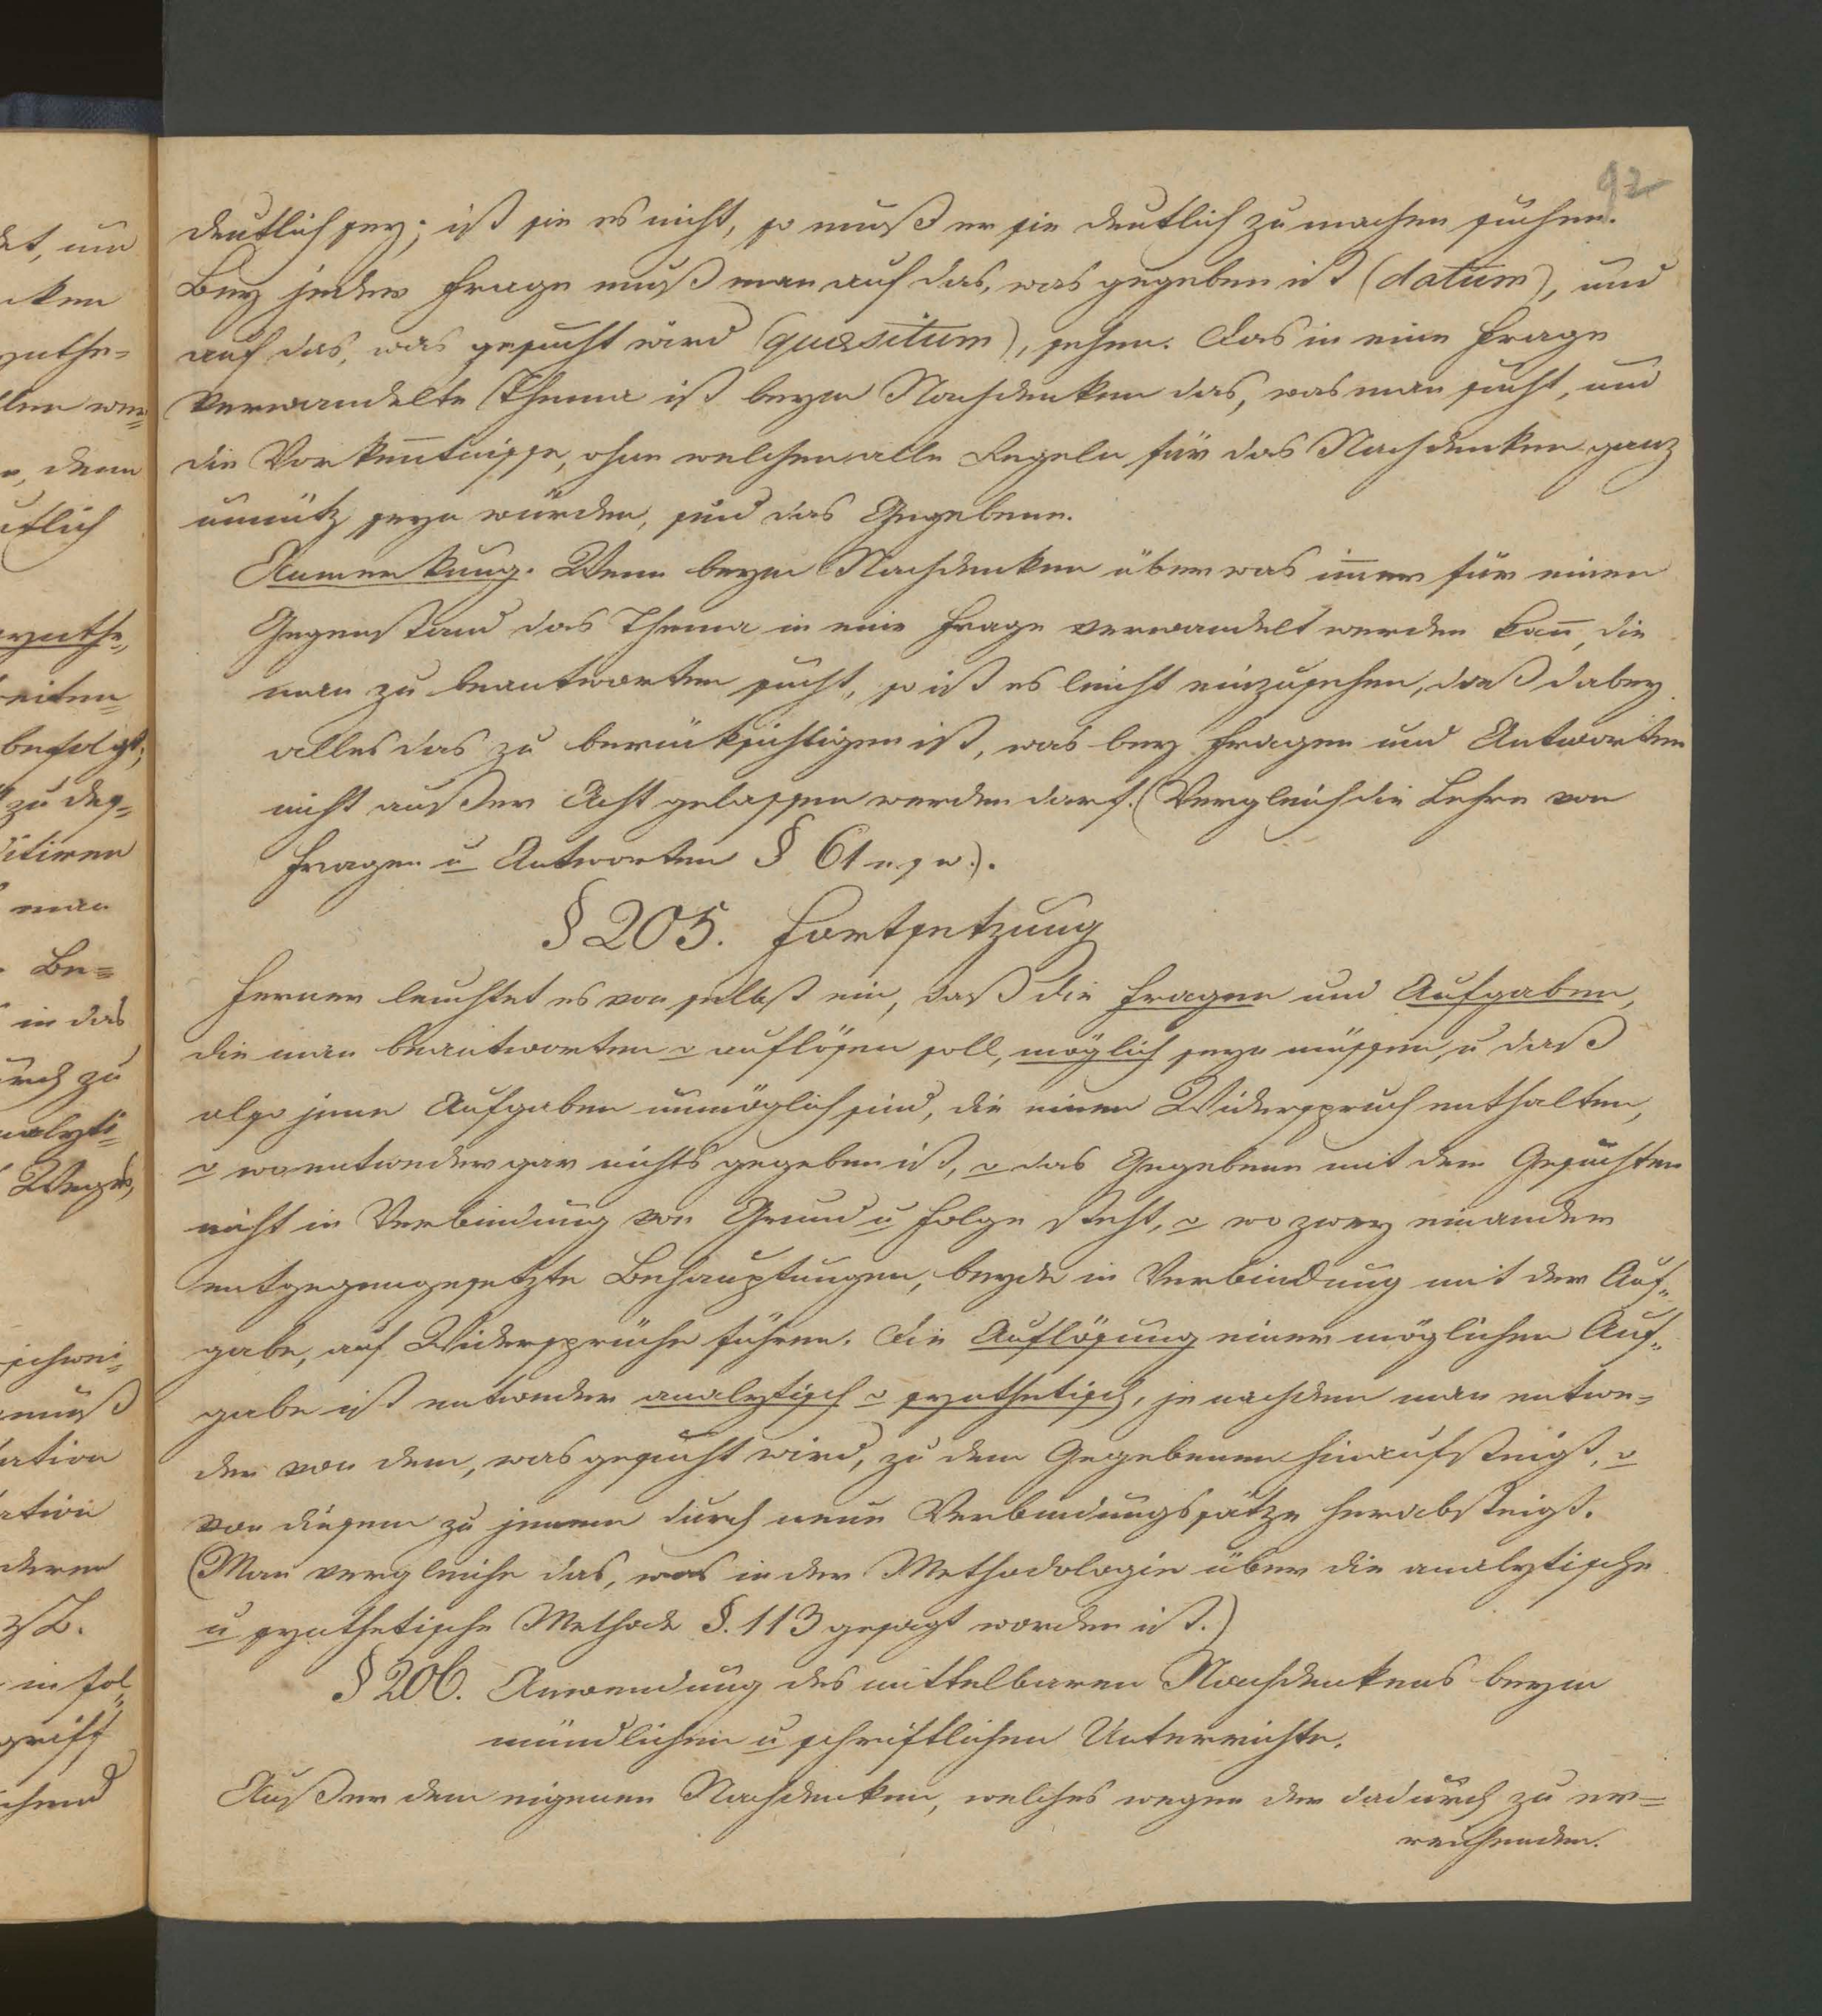 92
deutlich sey; ist sie es nicht, so muß er sie deutlich zu machen suchen.
Bey jeder Frage muß man auf das, was gegeben ist (datum), und
auf das, was gesucht wird (quæsitum), sehen. Das in eine Frage
verwandelte Thema ist beym Nachdenken das, was man sucht, und
die Vorkenntnisse, ohne welchen alle Regeln für das Nachdenken ganz
unnütz seyn würden, sind das Gegebene.
Anmerkung. Wenn beym Nachdenken über was im̅er für einen
Gegenstand das Thema in eine Frage verwandelt werden kan̅, die
man zu beantworten sucht, so ist es leicht einzusehen, daß dabey
alles das zu berücksichtigen ist, was bey Fragen und Antworten
nicht außer Acht gelassen werden darf. (Vergleich die Lehre von
Fragen u Antworten § 61 u. s w.).
§ 205. Fortsetzung
Ferner leuchtet es von selbst ein, daß die Fragen und Aufgaben,
die man beantworten o auflösen soll, möglich seyn müssen, u daß
also jene Aufgaben unmöglich sind, die einen Widerspruch enthalten,
o wo entweder gar nichts gegeben ist, o das Gegebene mit dem Gesuchten
nicht in Verbindung von Grund u Folge steht, o wo zwey einander
entgegengesetzte Behauptungen, beyde in Verbindung mit der Auf„
gabe, auf Widersprüche führen. Die Auflösung einer möglichen Auf„
gabe ist entweder analytisch o synthetisch, je nachdem man entwe=
der von dem, was gesucht wird, zu dem Gegebenen hinaufsteigt, o
von diesem zu jenem durch neue Verbindungssätze herabsteigt.
(Man vergleiche das, was in der Methodologie über die analytische
u synthetische Methode §. 113 gesagt worden ist.)
§ 206. Anwendung des mittelbaren Nachdenkens beym
mündlichen u schriftlichen Unterrichte.
Außer dem eigenen Nachdenken, welches wegen der dadurch zu er=
reichenden.